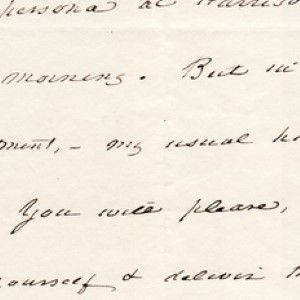 persona at Harriso
morning. But in
ment, - my usual h
You will please,
yourself & deliver